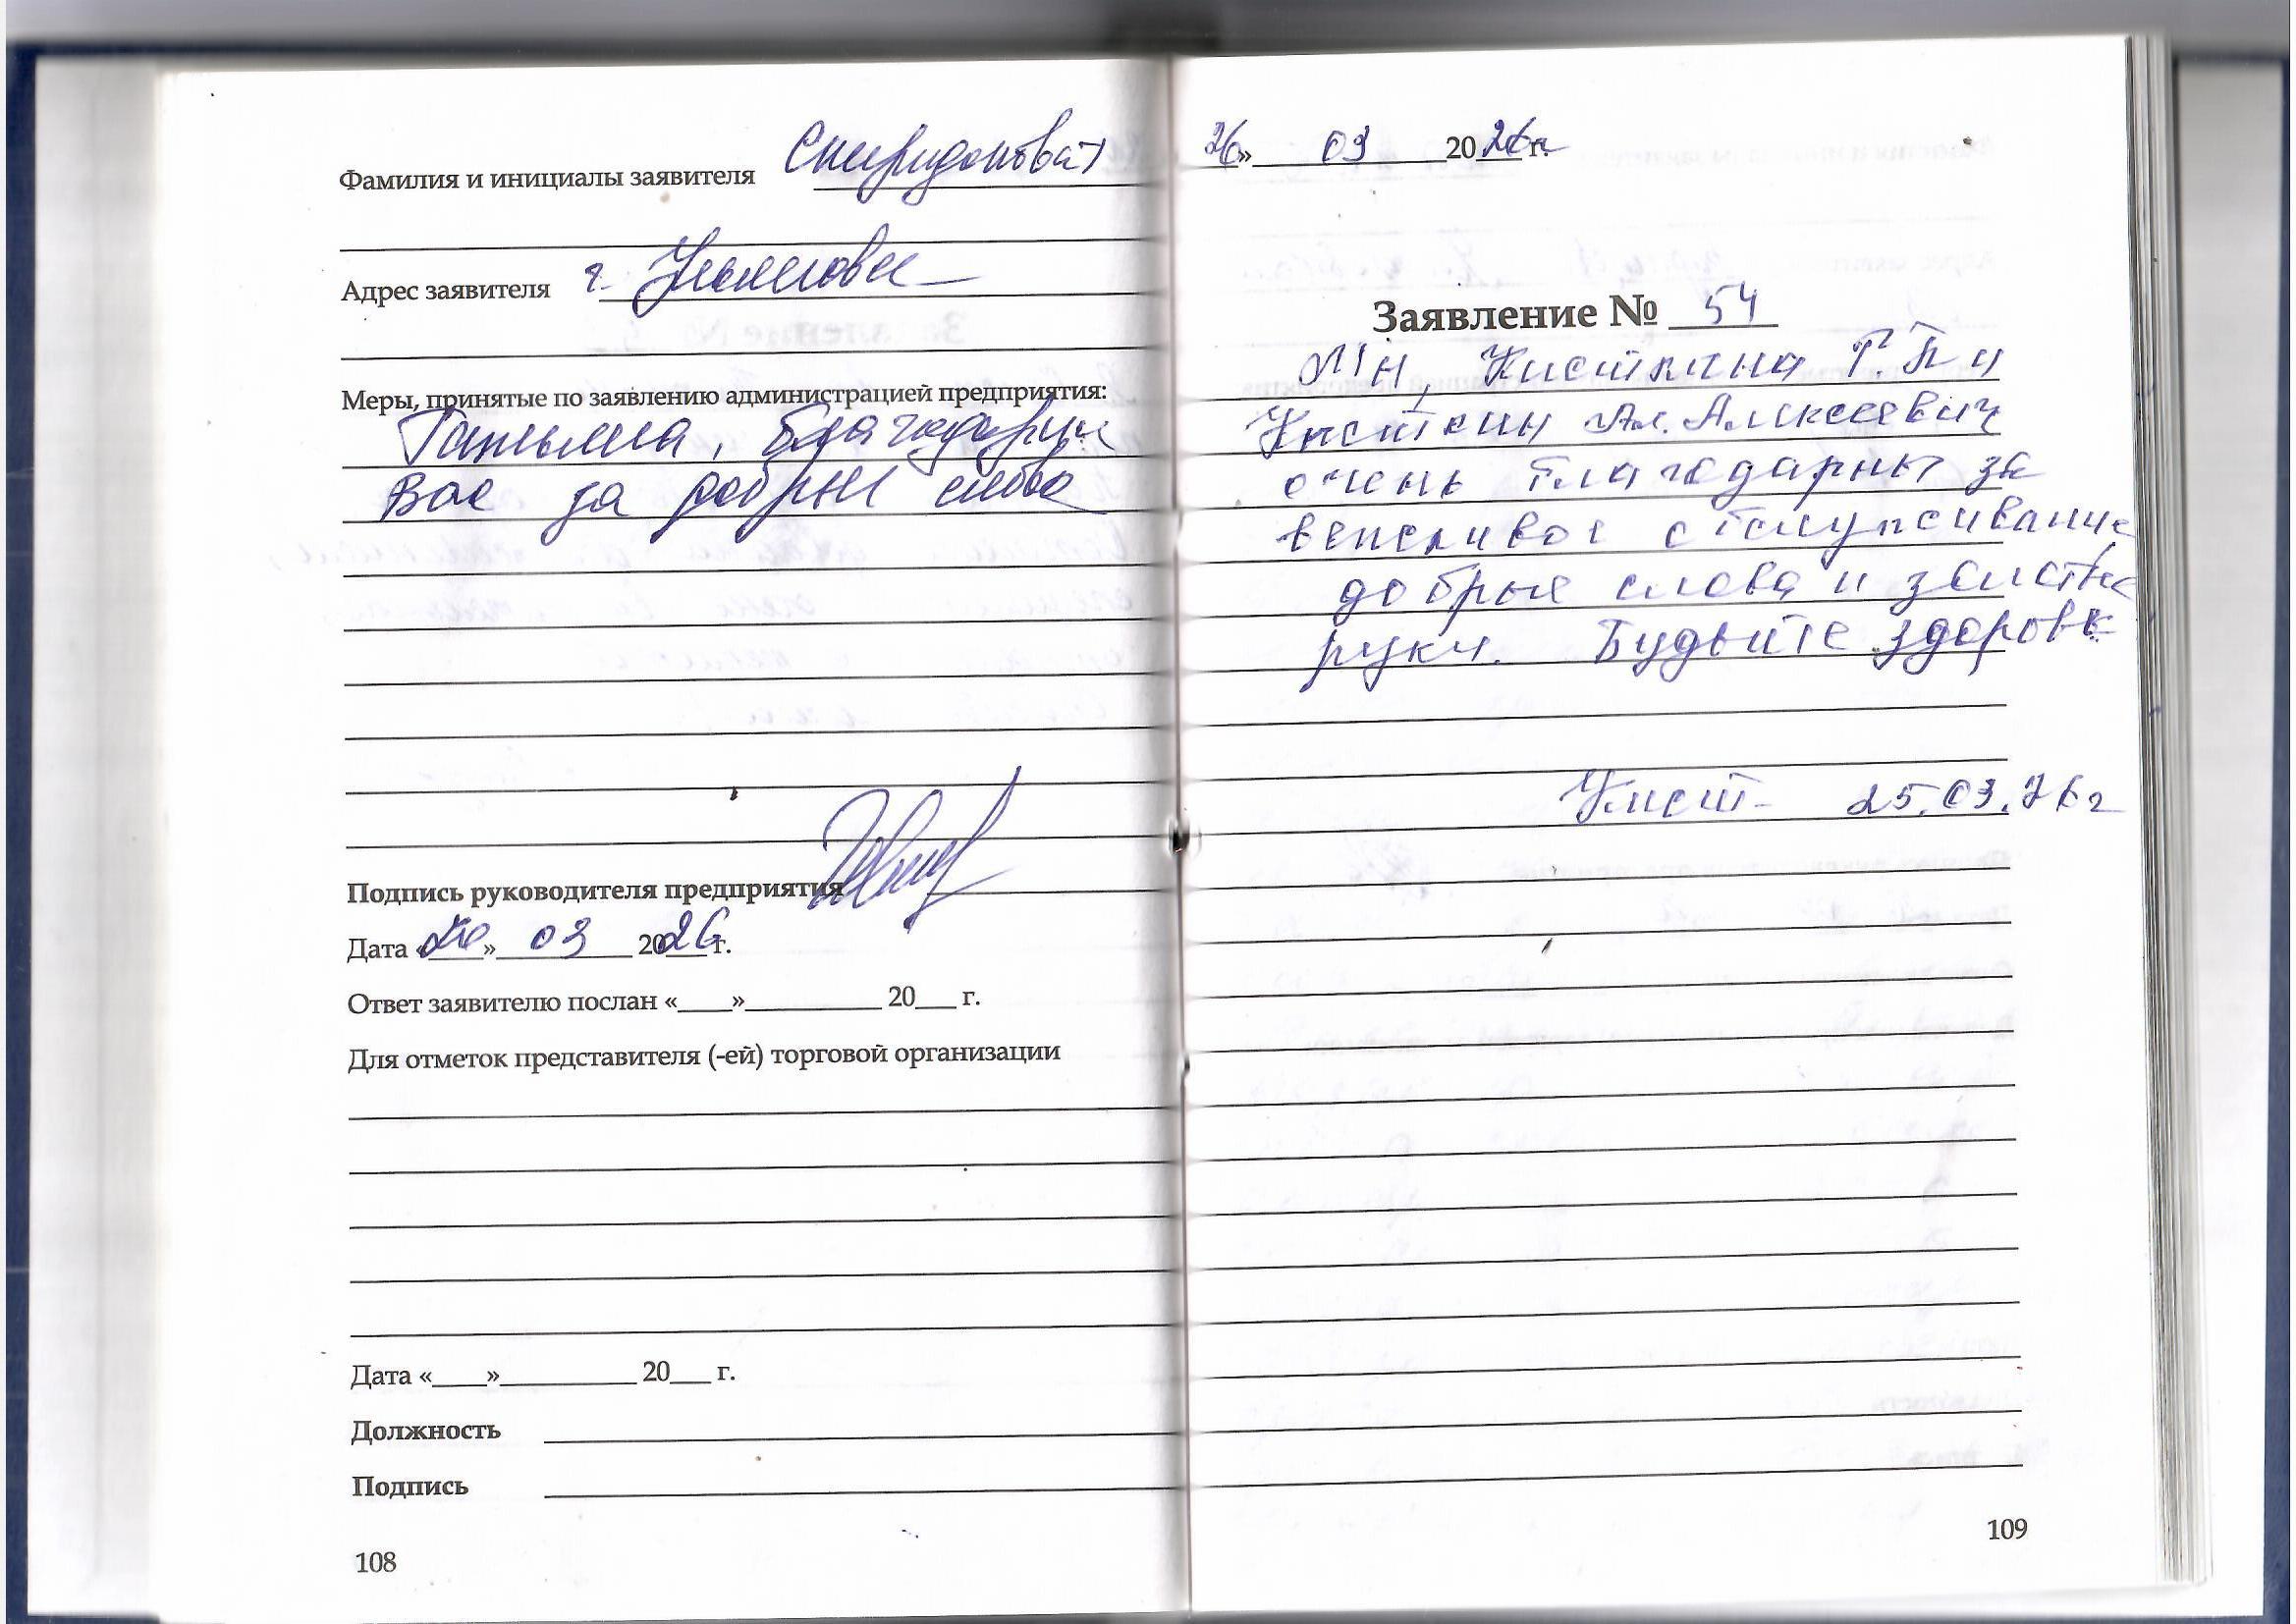 Фамилия и инициалы заявителя Спиридонова Т
Адрес заявителя г. Ульяновск
Меры, принятые по заявлению администрацией предприятия:
Татьяна, благодарим
Вас за добрые слова
Подпись руководителя предприятия
Дата «26» 03 2026 г.
Ответ заявителю послан «____»__________ 20___ г.
Для отметок представителя (-ей) торговой организации
Дата «____»__________ 20___ г.
Должность
Подпись
108
26» 03 2026 г.
Заявление № 54
Мы, Т.П и
Ал. Алексеевич
очень благодарны за
вежливое обслуживание
добрые слова и золотые
руки. Будьте здоровы
25.03.26г
109